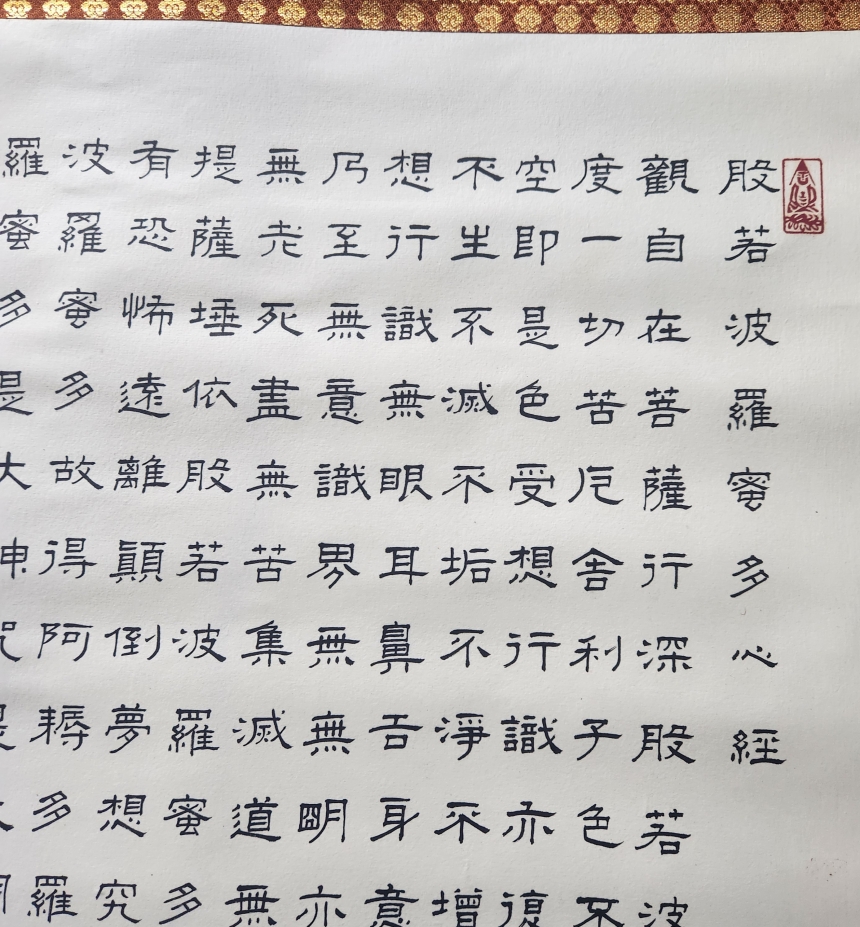 般若波羅蜜多心經
觀自在菩薩行深般若波
度一切苦厄舍利子色不
空即是色受想行識亦復
不生不滅不垢不淨不增
想行識無眼耳鼻舌身意
乃至無意識界無無明亦
無老死盡無苦集滅道無
提薩埵依般若波羅蜜多
有恐怖遠離顛倒夢想究
波羅蜜多故得阿耨多羅
羅蜜多是大神咒是大